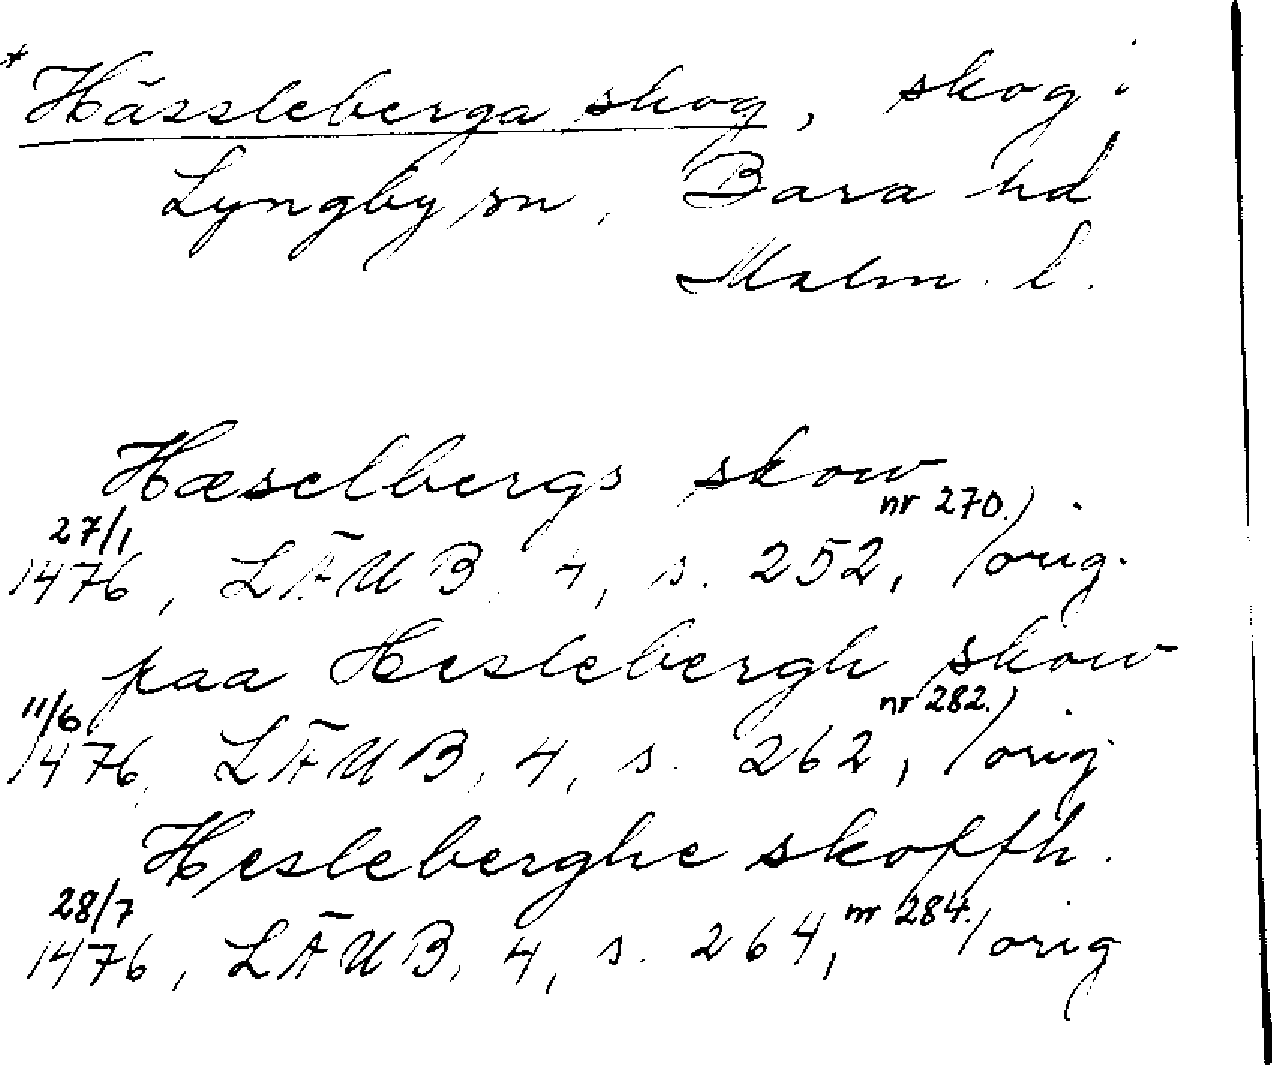 * Hässleberga skog, skog i
Lyngby sn, Bara hd
Malm. l.
Hæselbergs skow
27/1 1476, LÄUB 4, s. 252, nr 270.) orig.
paa Heslebergh skow
11/6 1476, LÄUB, 4, s. 262, nr 282.) orig.
Hesleberghe skoffh.
28/7 1476, LÄUB, 4, s. 264, nr 284.) orig